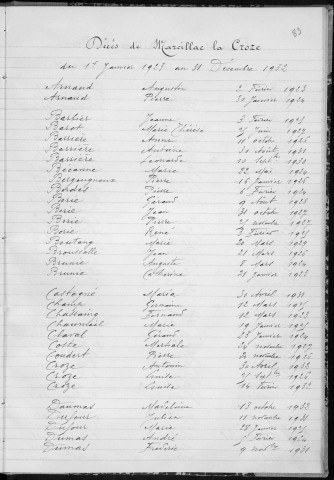 83
Décès de Marcillac la Croze
du 1er Janvier 1923 au 31 Décembre 1932
Arnaud Augustin 2 Février 1923
Arnaud Pierre 30 Janvier 1924
Barbier Jeanne 3 Février 1925
Barot Marie Thérèse Juin 1927
Barrière Anna 11 octobre 1926
Barrière Antoine 30 Août 1931
Barrière Léonarde 20 Septbre 1930
Bézanne Marie 22 Mai 1924
Pierre 16 Janvier 1926
Pierre 6 Février 1924
Borie Géraud 9 Août 1928
Borie Jean 31 octobre 1927
Borie Pierre 25 novembre 1932
Borie René 3 Février 1925
Boutang Marie 20 Mars 1929
Brousselle Jean 21 Mars 1926
Brunie Auguste 8 Mars 1924
Brunie Catherine 21 Janvier 1923
Castagné Maria 30 Avril 1931
Champ Germaine 12 Mars 1925
Chassaing Fernand 12 Mars 1923
Marie 19 Janvier 1925
Chaval Géraud 23 Janvier 1924
Coste Mathale 26 novembre 1927
Coudert Pierre 20 novembre 1926
Croze Antonin 30 Avril 1923
Croze Louise 21 Septbre 1926
Croze Louise 14 Février 1932
Daumas Madeleine 13 octobre 1932
Dufour Julien 11 novembre 1931
Dufour Maria 28 Janvier 1925
Dumas André Février 1924
Dumas Frédéric 9 novbre 1931